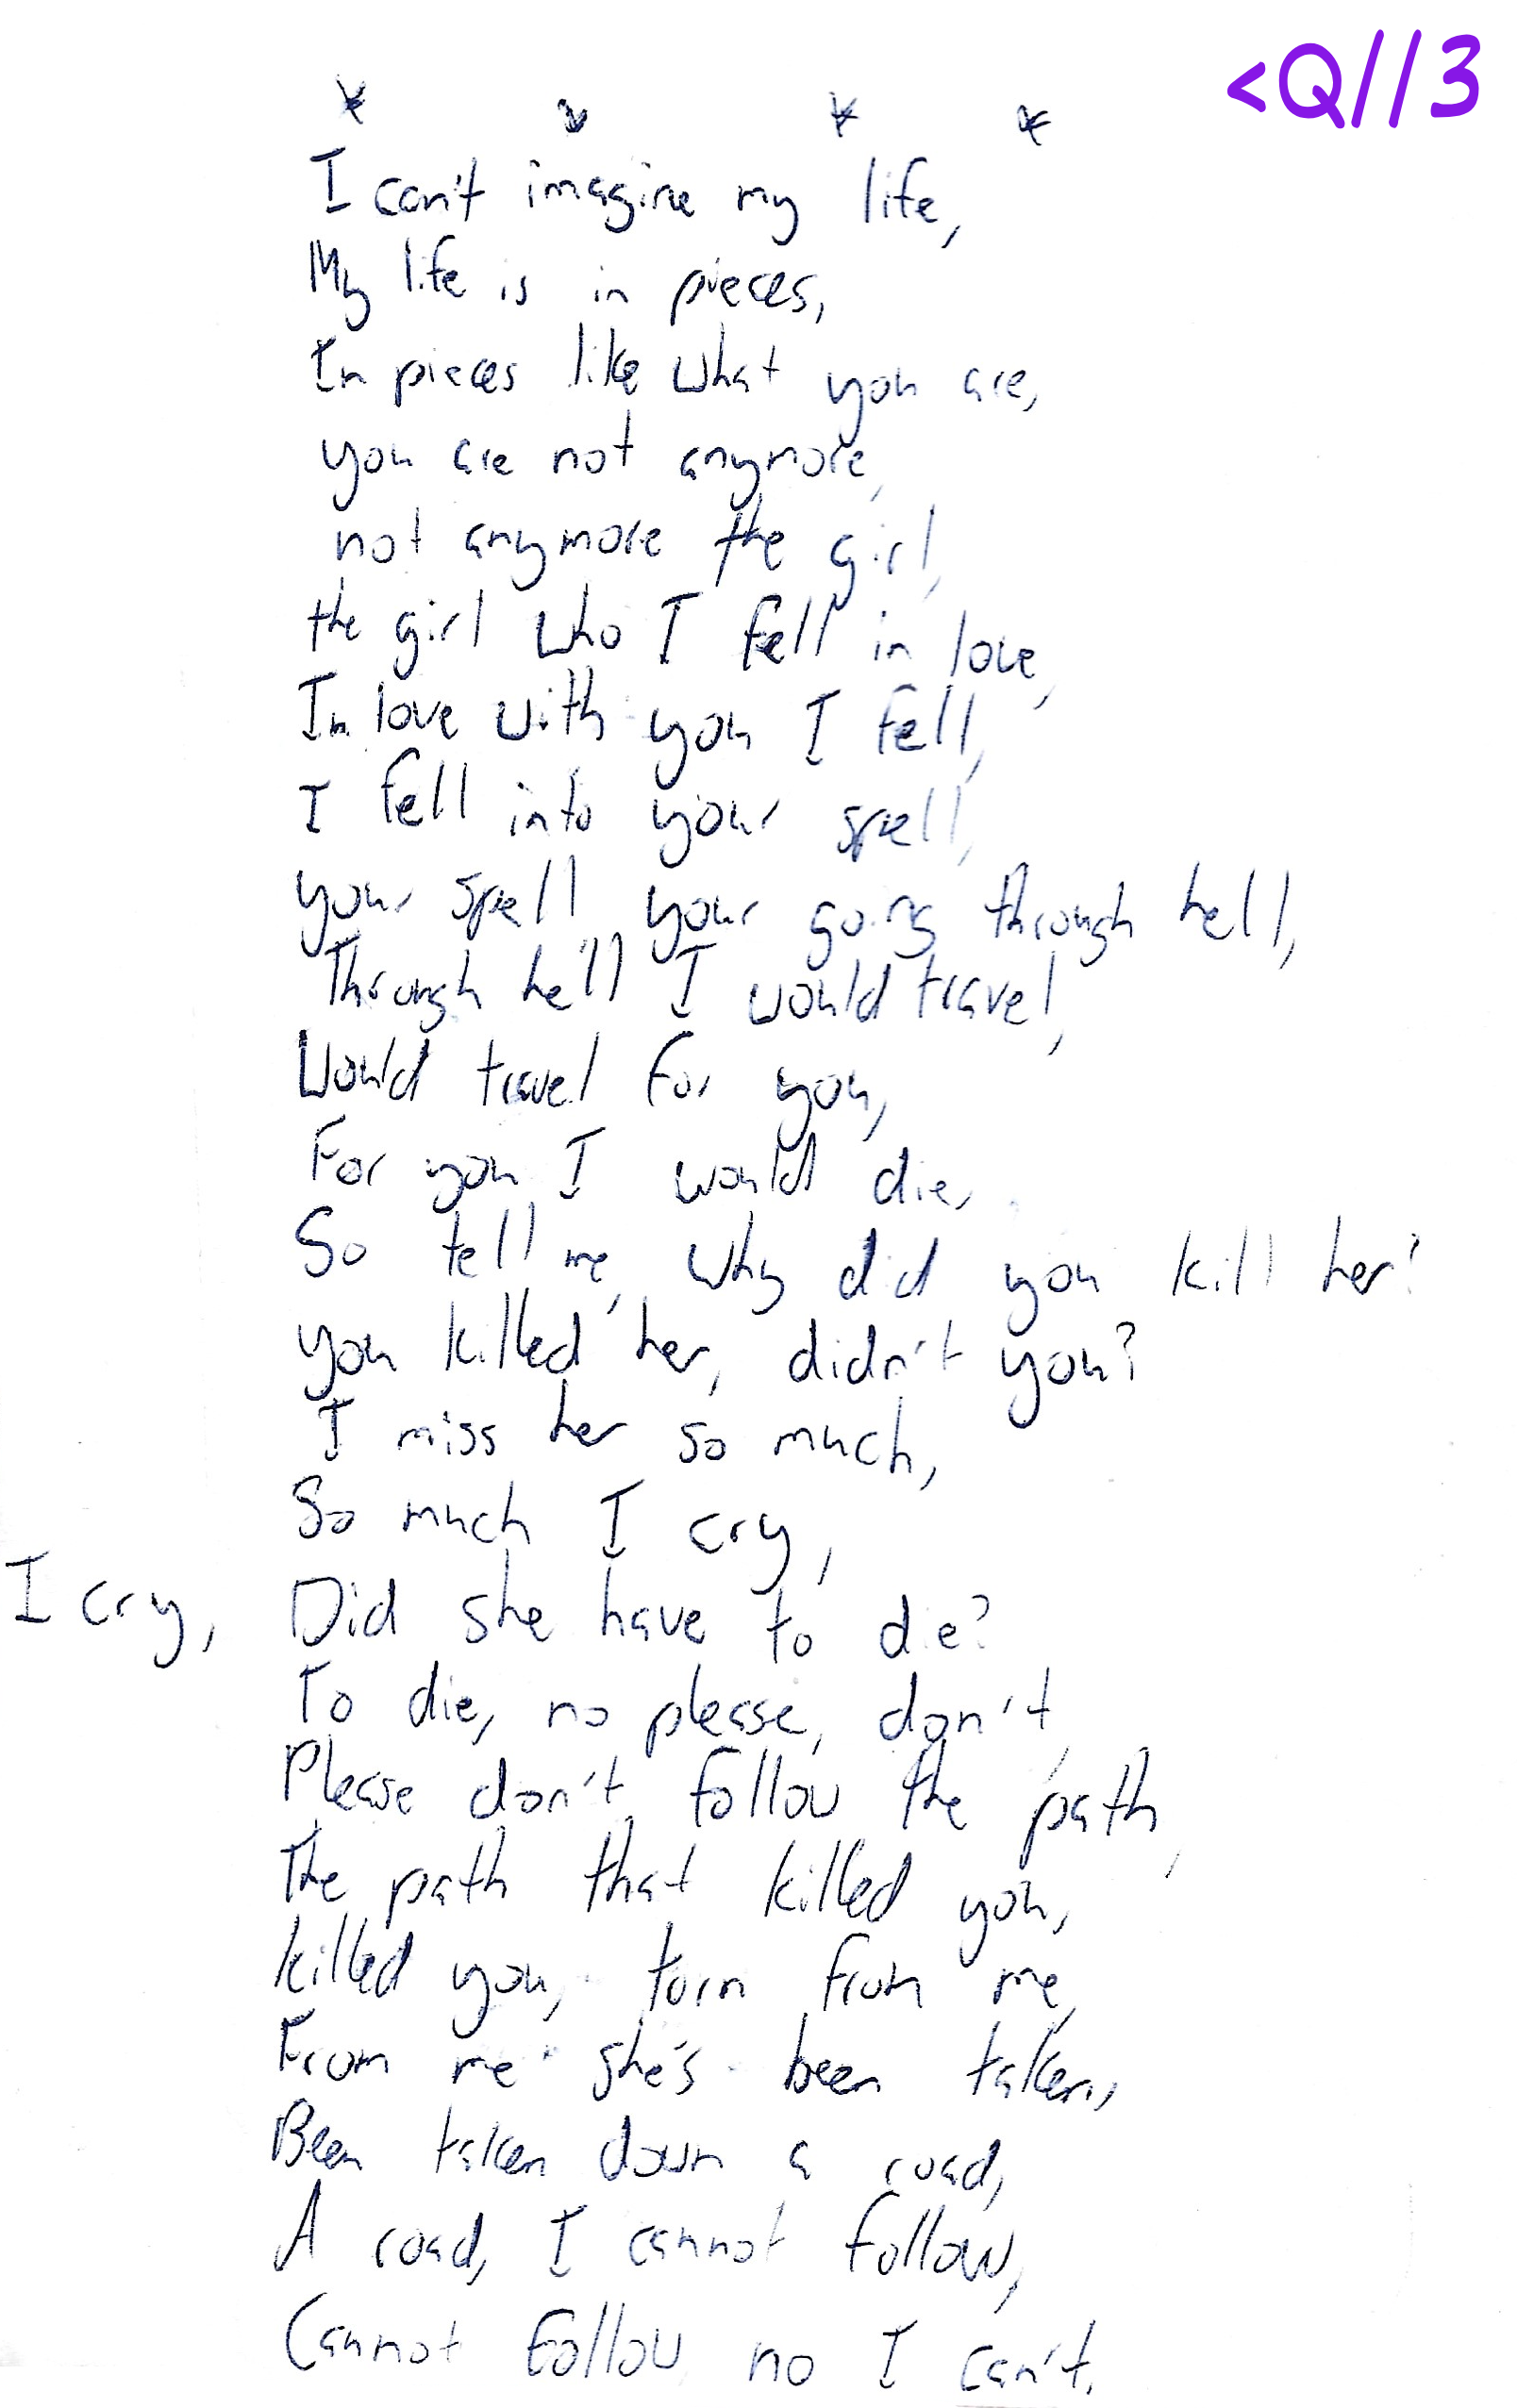 <Q//3
* * * *
I can't imagine my life,
My life is in pieces,
In pieces like what you are,
you are not anymore,
not anymore the girl,
the girl who I fell in love,
In love with you I fell,
I fell into your spell,
your spell your going through hell,
Through hell I would travel,
Would travel for you,
For you I would die,
So tell me, why did you kill her?
you killed her, didn't you?
I miss her so much,
So much I cry,
I cry, Did she have to die?
To die, no please, don't,
Please don't follow the path,
The path that killed you,
killed you, torn from me,
From me she's been taken,
Been taken down a road,
A road, I cannot follow,
Cannot follow, no I can't.